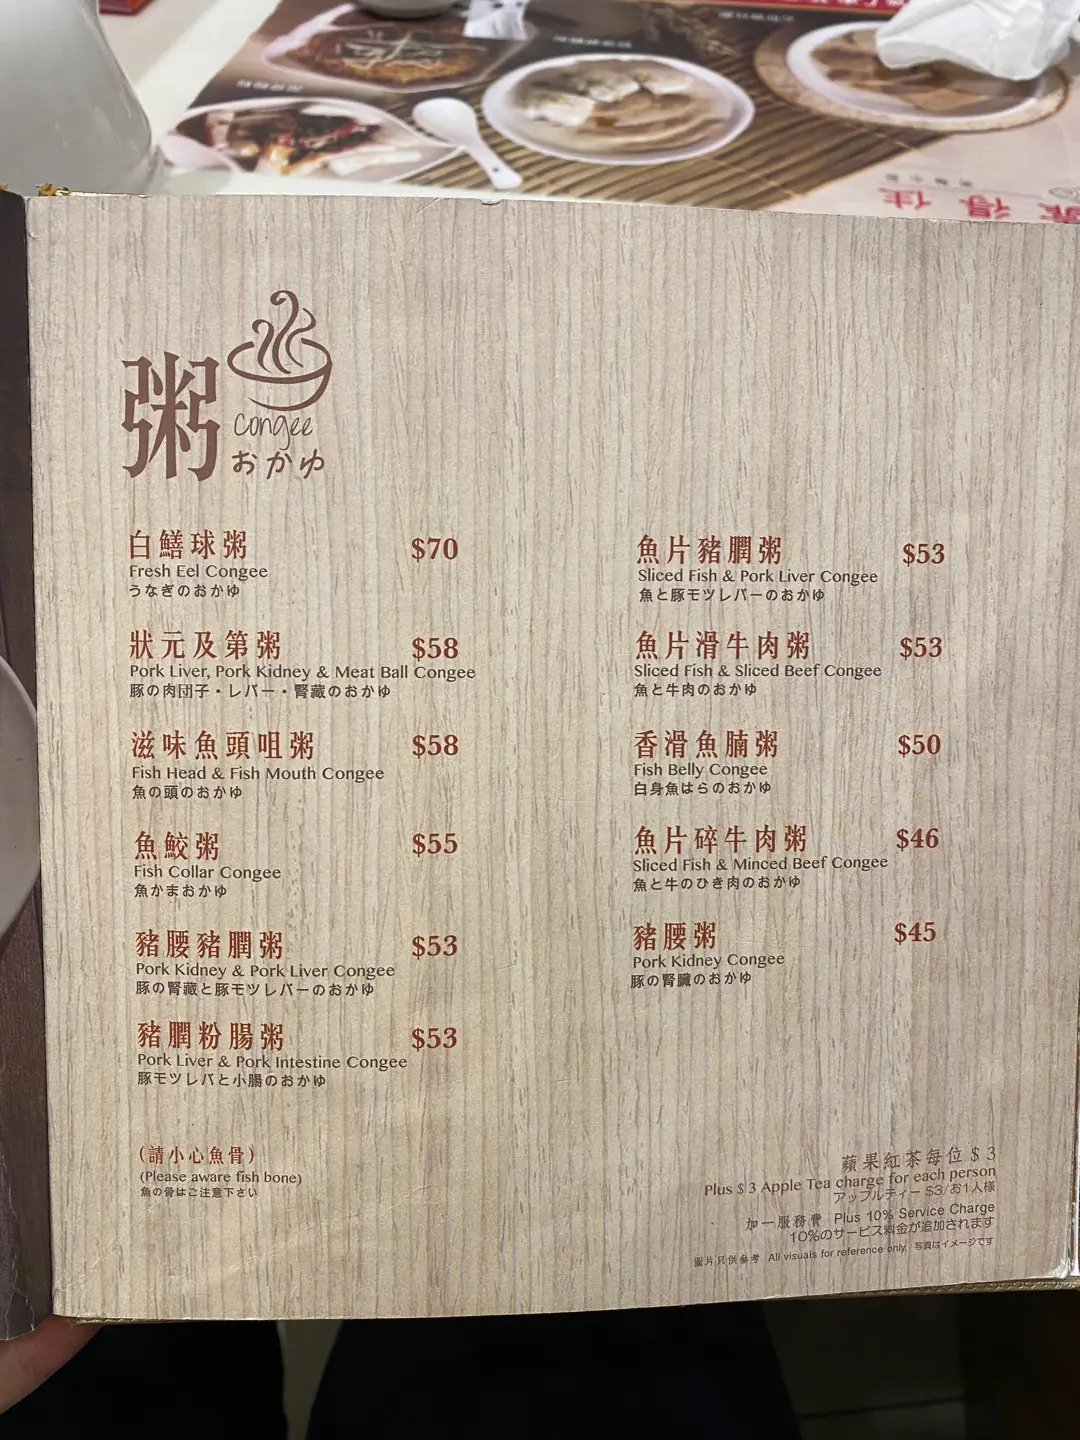 佳得
粥
Congee
おかゆ
白鱔球粥 $70
Fresh Eel Congee
うなぎのおかゆ
狀元及第粥 $58
Pork Liver, Pork Kidney & Meat Ball Congee
豚の肉団子・レバー・腎蔵のおかゆ
滋味魚頭咀粥 $58
Fish Head & Fish Mouth Congee
魚の頭のおかゆ
魚鮫粥 $55
Fish Collar Congee
魚かまおかゆ
豬腰豬膶粥 $53
Pork Kidney & Pork Liver Congee
豚の腎蔵と豚モツレバーのおかゆ
豬膶粉腸粥 $53
Pork Liver & Pork Intestine Congee
豚モツレバと小腸のおかゆ
(請小心魚骨)
(Please aware fish bone)
魚の骨はご注意下さい
魚片豬膶粥 $53
Sliced Fish & Pork Liver Congee
魚と豚モツレバーのおかゆ
魚片滑牛肉粥 $53
Sliced Fish & Sliced Beef Congee
魚と牛肉のおかゆ
香滑魚腩粥 $50
Fish Belly Congee
白身魚はらのおかゆ
魚片碎牛肉粥 $46
Sliced Fish & Minced Beef Congee
魚と牛のひき肉のおかゆ
豬腰粥 $45
Pork Kidney Congee
豚の腎臓のおかゆ
蘋果紅茶每位 $ 3
Plus $ 3 Apple Tea charge for each person
アップルティー $3/お1人様
加一服務費 Plus 10% Service Charge
10%のサービス料金が追加されます
圖片只供參考 All visuals for reference only. 写真はイメージです